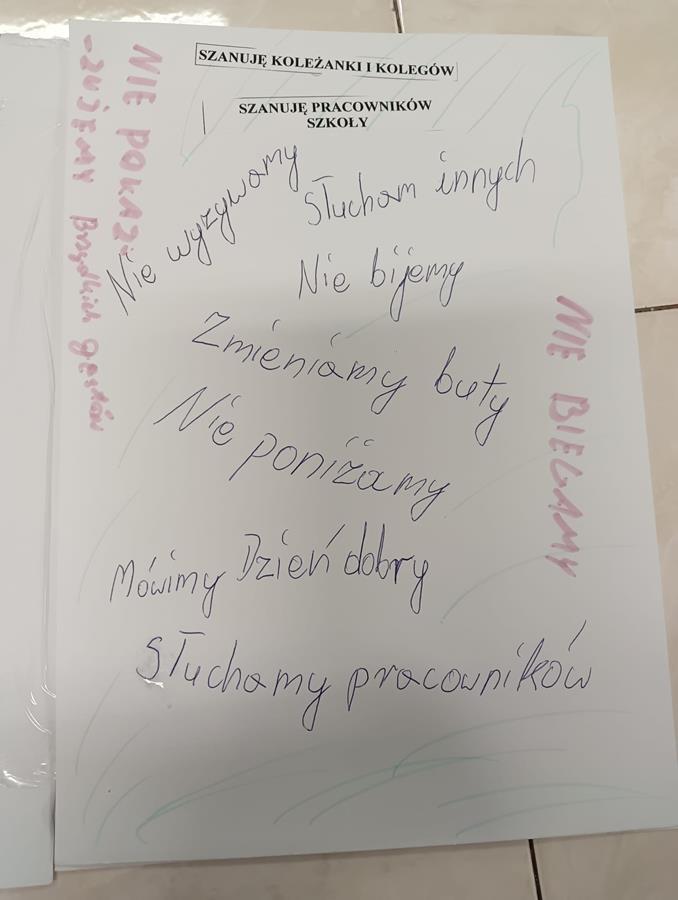 SZANUJĘ KOLEŻANKI I KOLEGÓW
SZANUJĘ PRACOWNIKÓW
SZKOŁY
Nie wyzywamy
Słucham innych
Nie bijemy
Zmieniamy buty
Nie poniżamy
Mówimy Dzień dobry
Słuchamy pracowników
NIE POKAZ-
-ZUJEMY Brzydkich gestów
NIE BIEGAMY